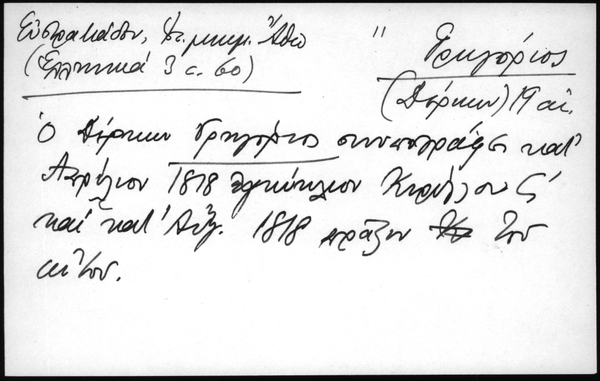 Εὐστρατιάδου, Ἱστ. μνημ. Ἄθω
(Ἑλληνικά 3 σ. 60)
" Γρηγόριος
(Δέρκων) 19 αἰ.
ὁ Δέρκων Γρηγόριος συνυπογράφει κατ'
Ἀπρίλιον 1818 ἐγκύκλιον Κυρίλλου Ϛ'
καὶ κατ' Αὔγ. 1818 πρᾶξιν τοῦ
αὐτοῦ.